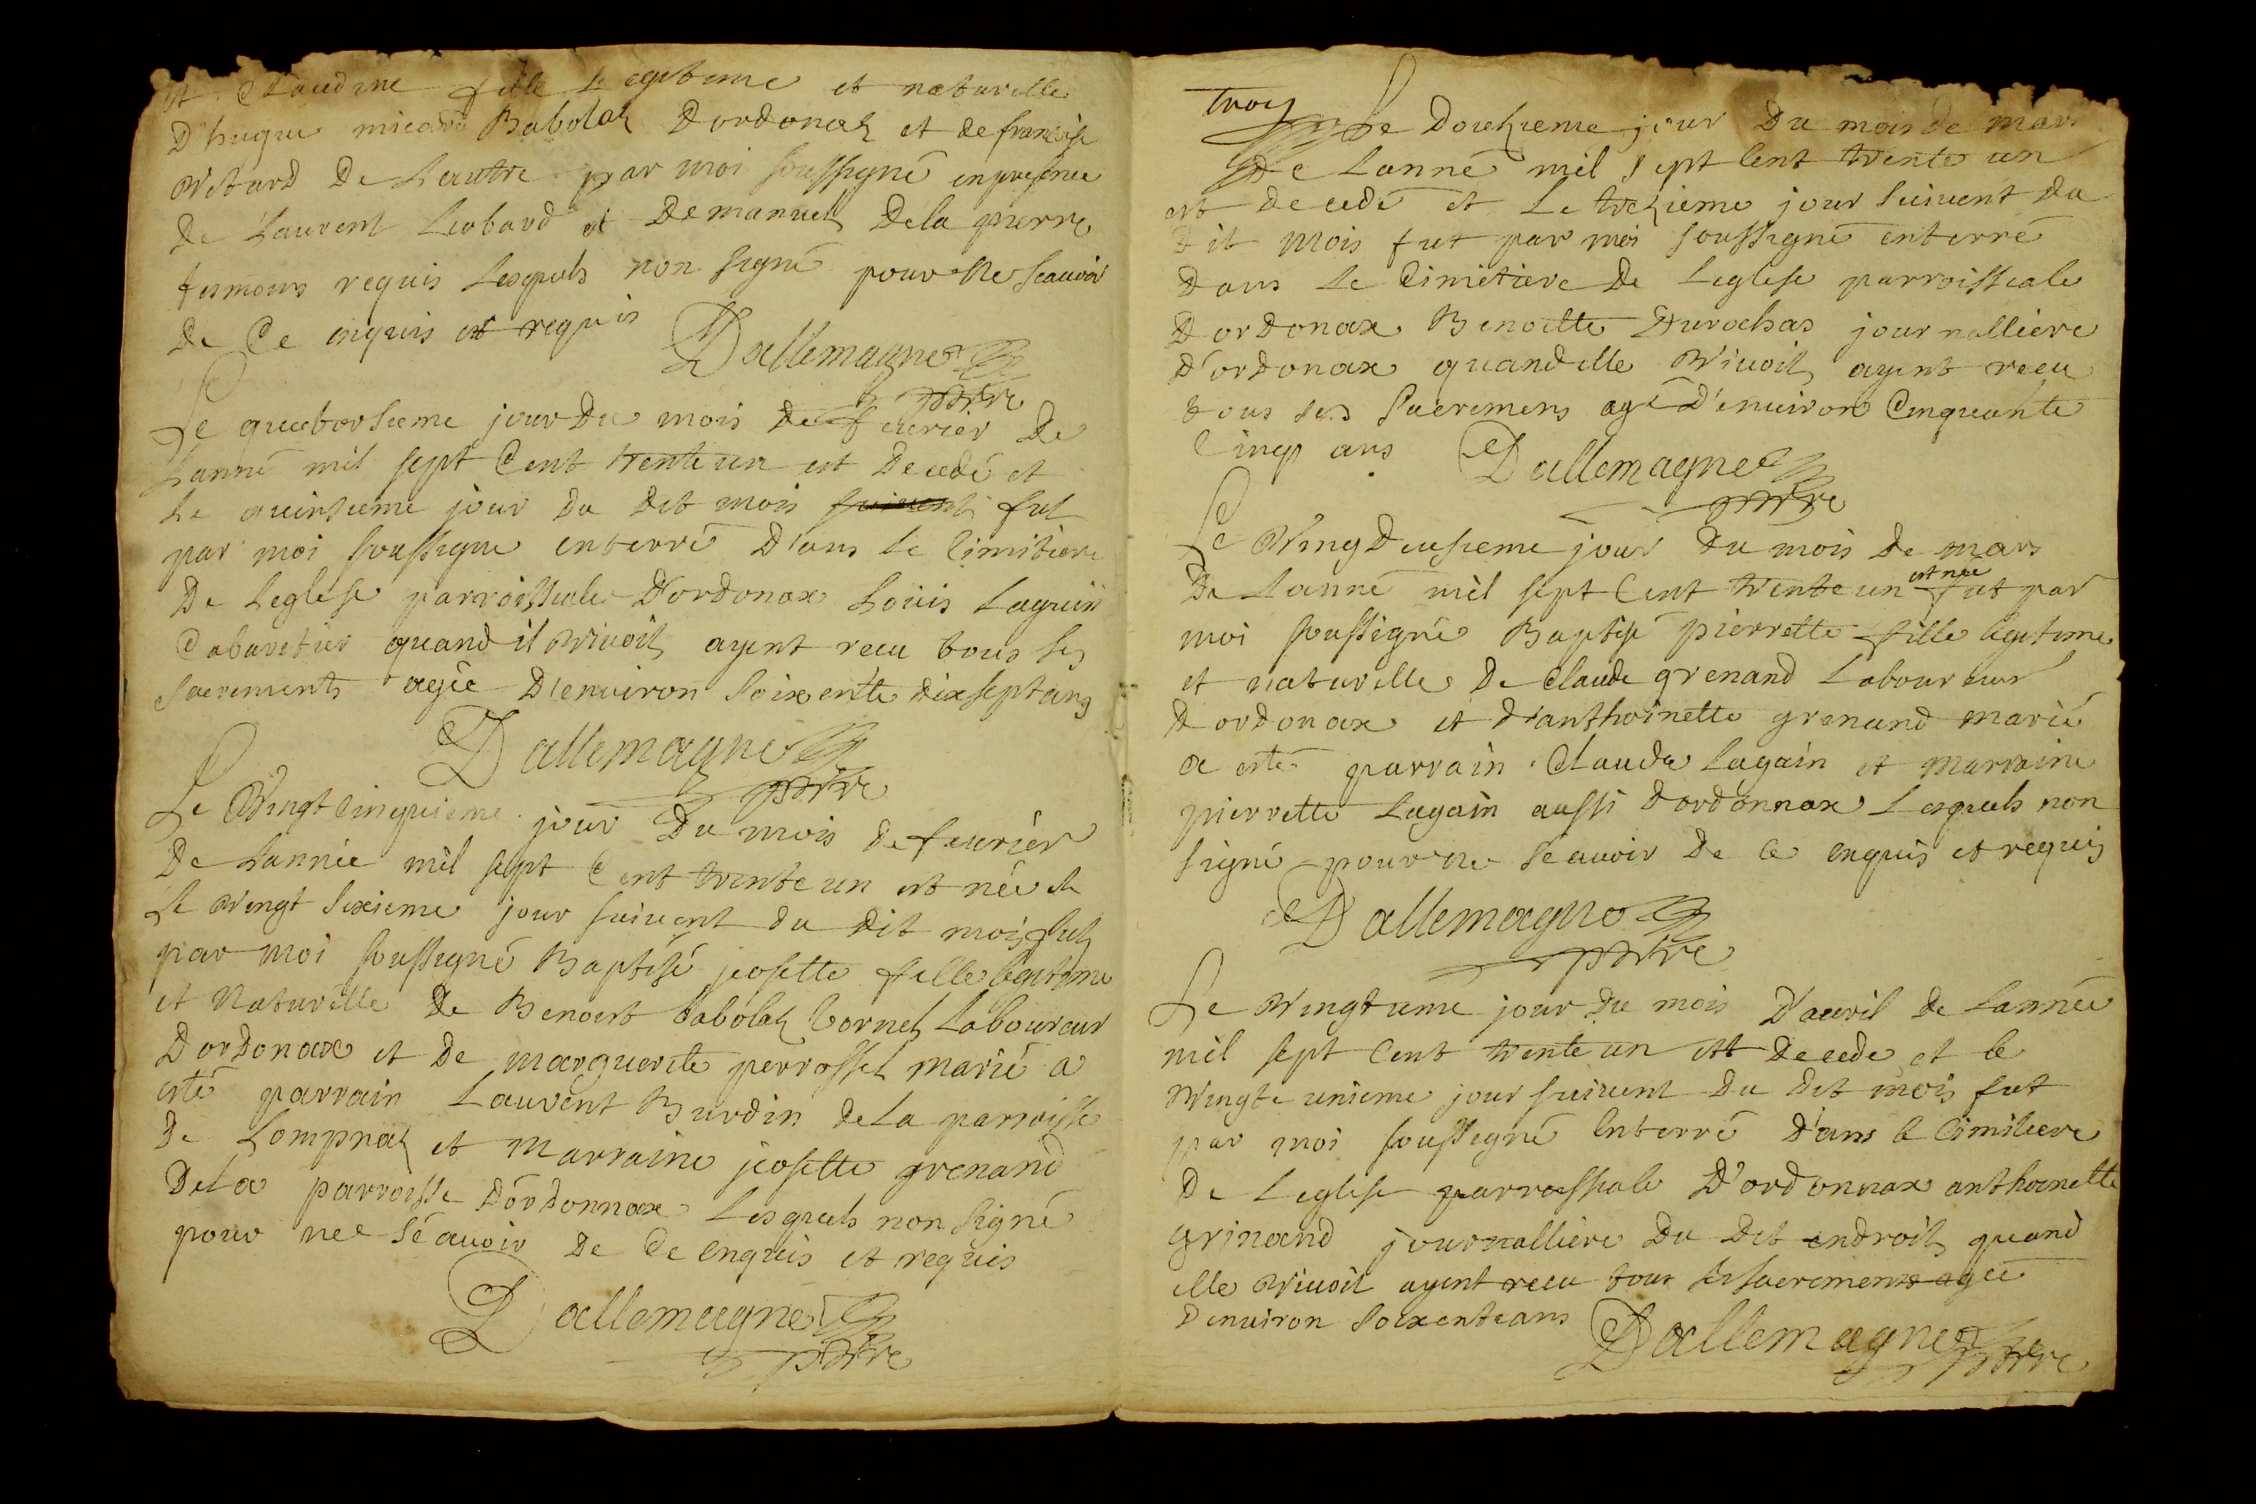 et Claudine fille Legitime et naturelle
D'hugue micard Babolaz D'ordonaz et de francoise
Wetard De Lautre par moi soussigné enpresence
De Laurent Liobard et De manuel Dela pierre
tesmoins requis Lesquels non signé pour ne scauoir
De Ce enquis et requis
Dallemagne
pbtre
Le quatorsieme jour Du mois De feurier De
Lanné mil sept Cent trente un est Decedé et
Le quinsieme jour Du Dit mois suiuent fut
par moi soussigne enterré D'ans Le Cimitiere
De Leglese parroissiale D'ordonax Loüis Laguin
Cabaretier quand il Wiuoit ayent recu tous ses
sacrements ageé D'enuiron soixente dix sept ans
Dallemagne
pbtre
Le Wingt Cinquieme jour Du mois De feurier
De Lannée mil sept Cent trente un est néé et
Le Wingt sixieme jour suiuent du Dit mois fut
par moi soussigné Baptisé josette fille legitime
et Naturelle De Benoit babolaz Cornet Laboureur
D'ordonax et De marguerite perrosset marié a
esté parrain Laurent Burdin de La parroisse
De Lompnaz et Marraine josette grenand
De La parroisse D'ordonnax Lesquels non signé
pour nee Séauoir De Ce enquis et requis
Dallemagne
pbtre
troy
Le Douzieme jour Du mois de mars
De Lanné mil sept Cent trente un
est Decedé et Le trezieme jour suiuent Du
Dit Mois fut par moi soussigné enterré
Dans Le Cimetiere De Leglese parroissiale
D'ordonax Benoitte Durochas journalliere
D'ordonax quand elle Wiuoit ayent recu
tous ses Sacremens agé D'enuiron Cinquante
Cinq ans
Dallemagne
pbtre
Le Wing Deusieme jour Du mois De mars
est née
De Lanné mil sept Cent trente un fut par
moi soussigné Baptisé pierrette fille legitime
et naturelle De Claude grenand Laboureur
D'ordonax et D'anthoinette grenand marié
a esté parrain Claude Lagain et Marraine
pierrette Lagain aussi D'ordonnax Lesquels non
signé pour ne Seauoir De Ce enquis et requis
Dallemagne
pbtre
Le Wingtieme jour Du mois D'auril De Lannée
mil sept Cent trente un est Decede et le
Wingte unieme jour suiuent Du Dit mois fut
par moi soussigné Enterré D'ans le Cimitiere
De Leglese parroissiale D'ordonnax anthoinette
grinand journalliere Du Dit endroit quand
elle Wiuoit ayent recu tous ses sacremens ageé
D'enuiron Soixente ans
Dallemagne
pbtre